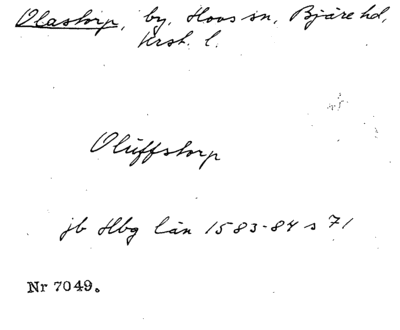 Olastorp, by, Hovs sn, Bjäre hd,
Krst. l.
Oluffstorp
jb Hbg län 1583-84 s 71
Nr 7049.